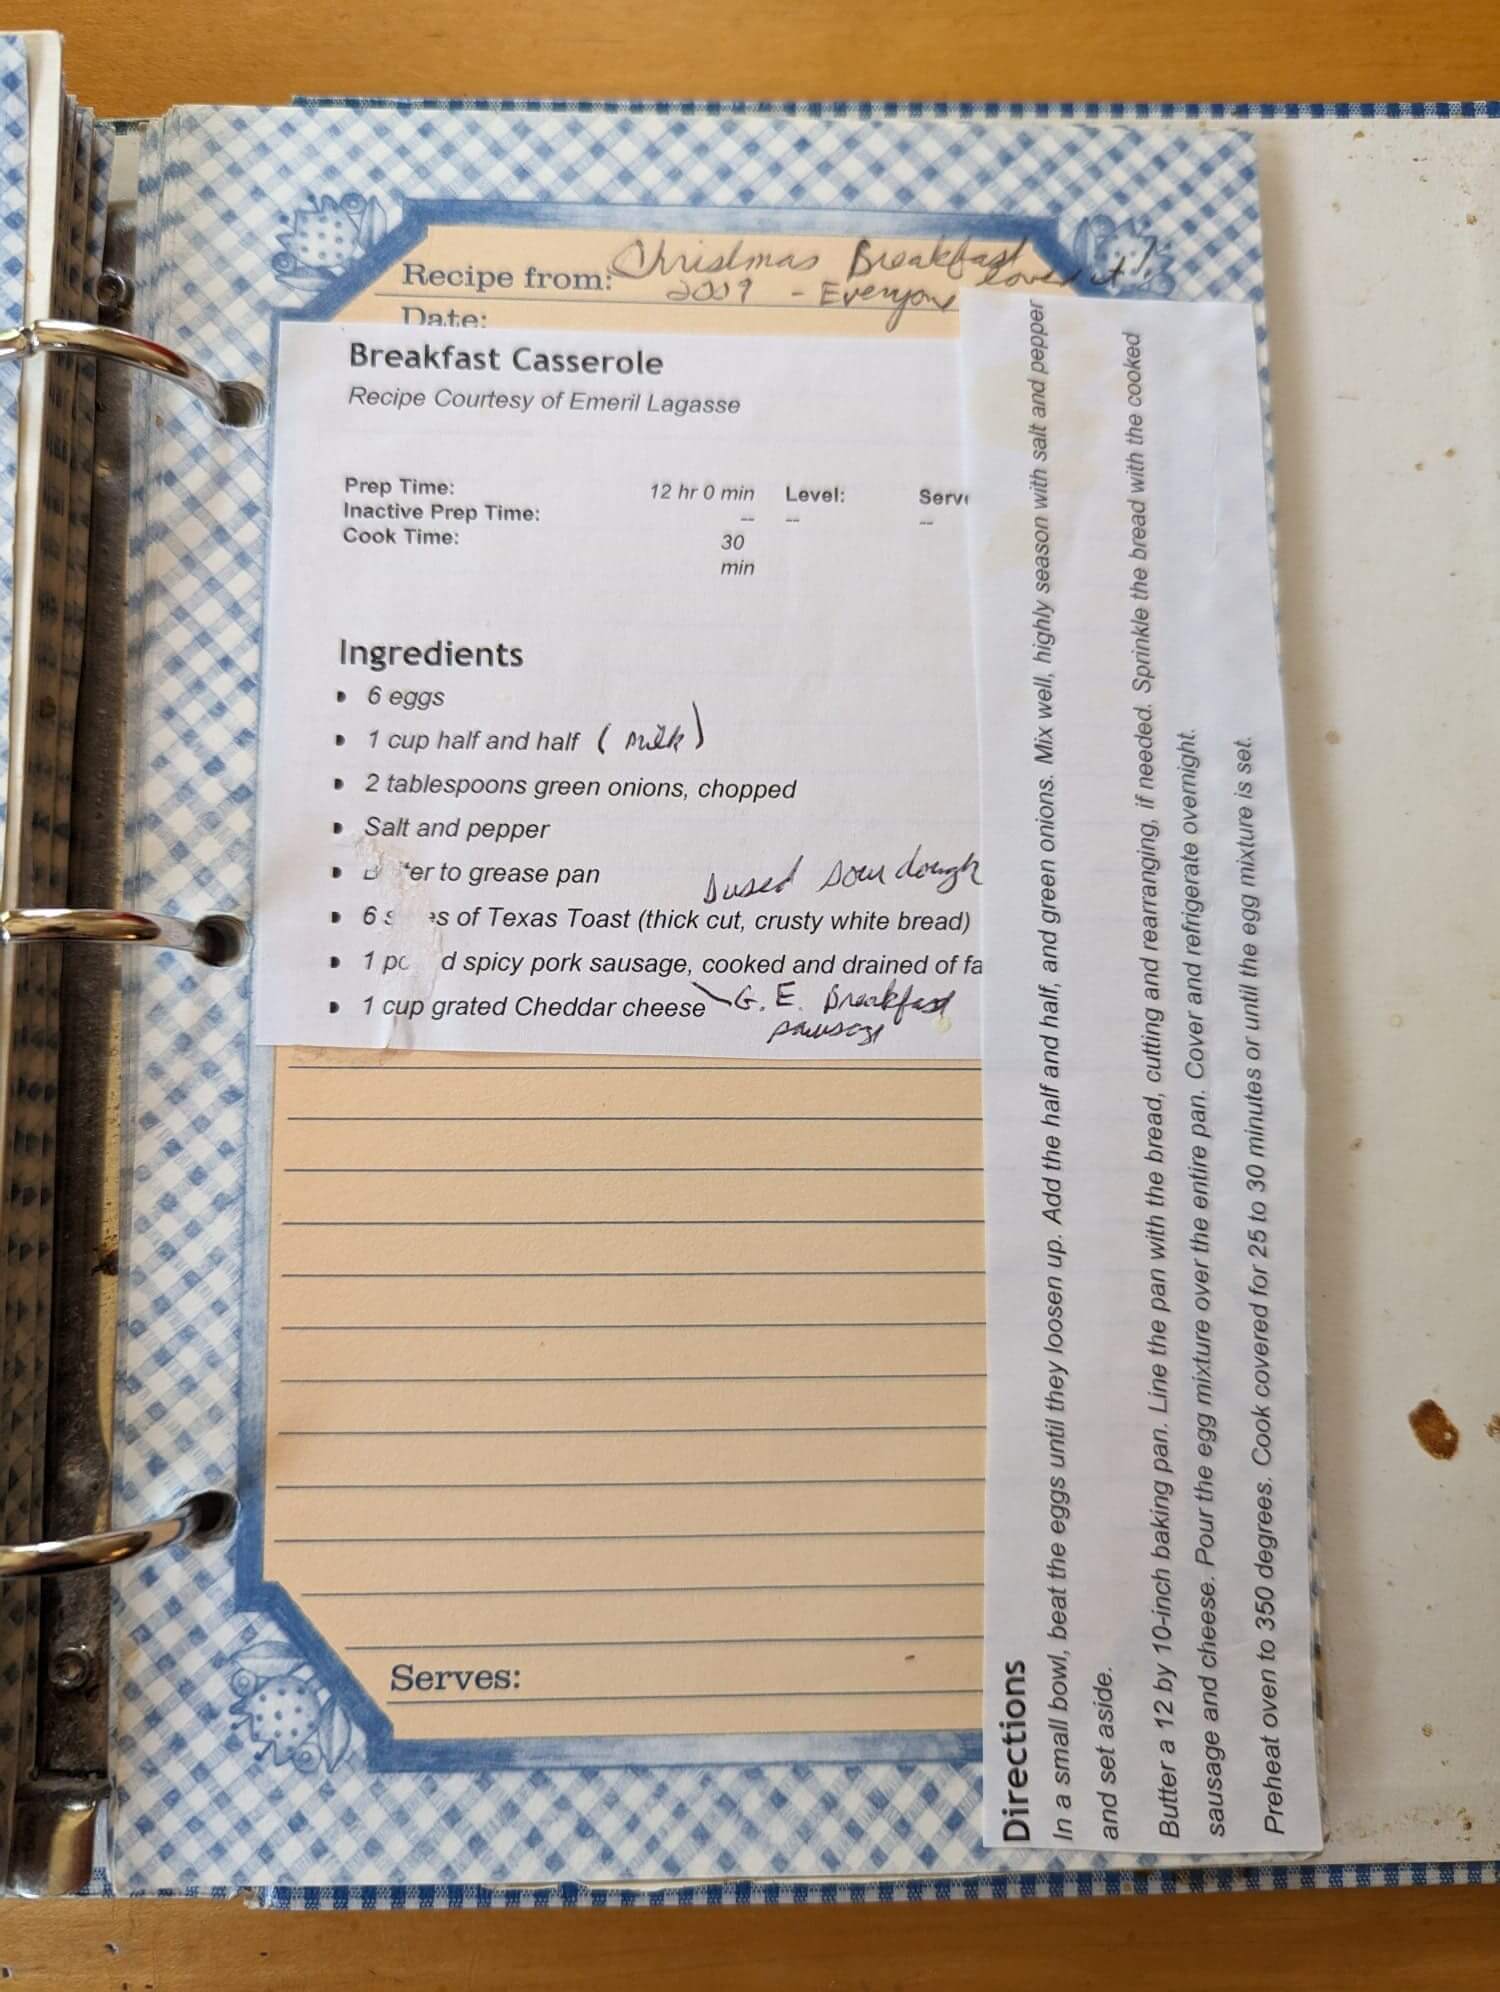 Recipe from: Christmas Breakfast
2009 - Everyone loved it!
Date:
Breakfast Casserole
Recipe Courtesy of Emeril Lagasse
Prep Time: 12 hr 0 min Level: Serv
Inactive Prep Time: -- -- --
Cook Time: 30
min
Ingredients
6 eggs
1 cup half and half (milk)
2 tablespoons green onions, chopped
Salt and pepper
er to grease pan
used sour dough
6 s es of Texas Toast (thick cut, crusty white bread)
1 po d spicy pork sausage, cooked and drained of fa
1 cup grated Cheddar cheese G.E. Breakfast
sausage
Serves:
Directions
In a small bowl, beat the eggs until they loosen up. Add the half and half, and green onions. Mix well, highly season with salt and pepper
and set aside.
Butter a 12 by 10-inch baking pan. Line the pan with the bread, cutting and rearranging, if needed. Sprinkle the bread with the cooked
sausage and cheese. Pour the egg mixture over the entire pan. Cover and refrigerate overnight.
Preheat oven to 350 degrees. Cook covered for 25 to 30 minutes or until the egg mixture is set.